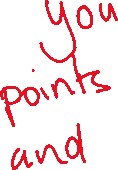 you
points
and